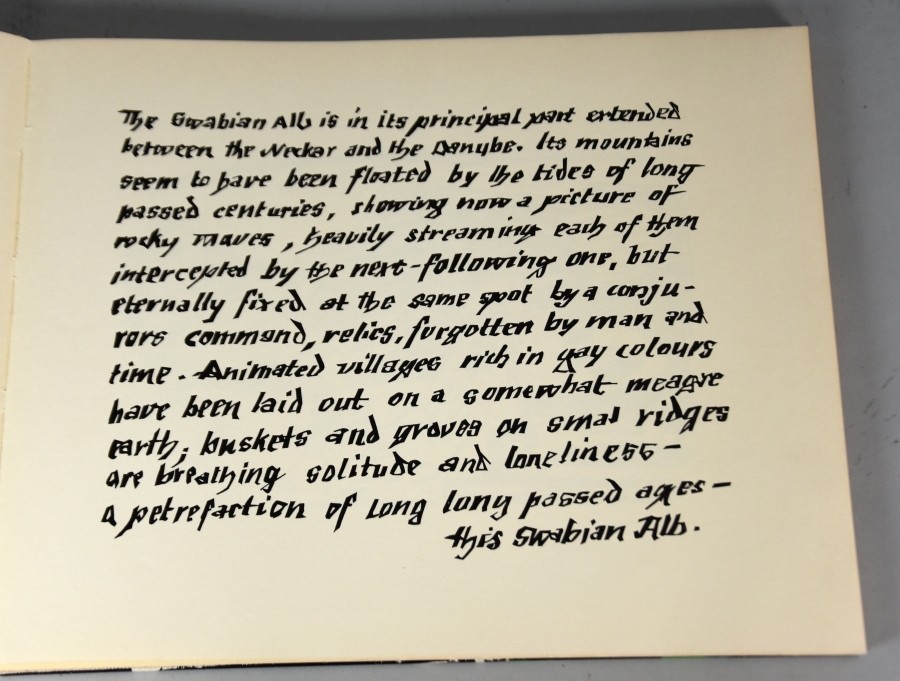 The Swabian Alb is in its principal part extended
between the Neckar and the Danube. Its mountains
seem to have been floated by the tides of long
passed centuries, showing now a picture of
rocky waves, heavily streaming each of them
intercepted by the next-following one, but
eternally fixed at the same spot by a conju-
rors command, relics, forgotten by man and
time. Animated villages rich in gay colours
have been laid out on a somewhat meagre
earth; buskets and groves on smal ridges
are breathing solitude and loneliness -
a petrefaction of long long passed ages -
this Swabian Alb.